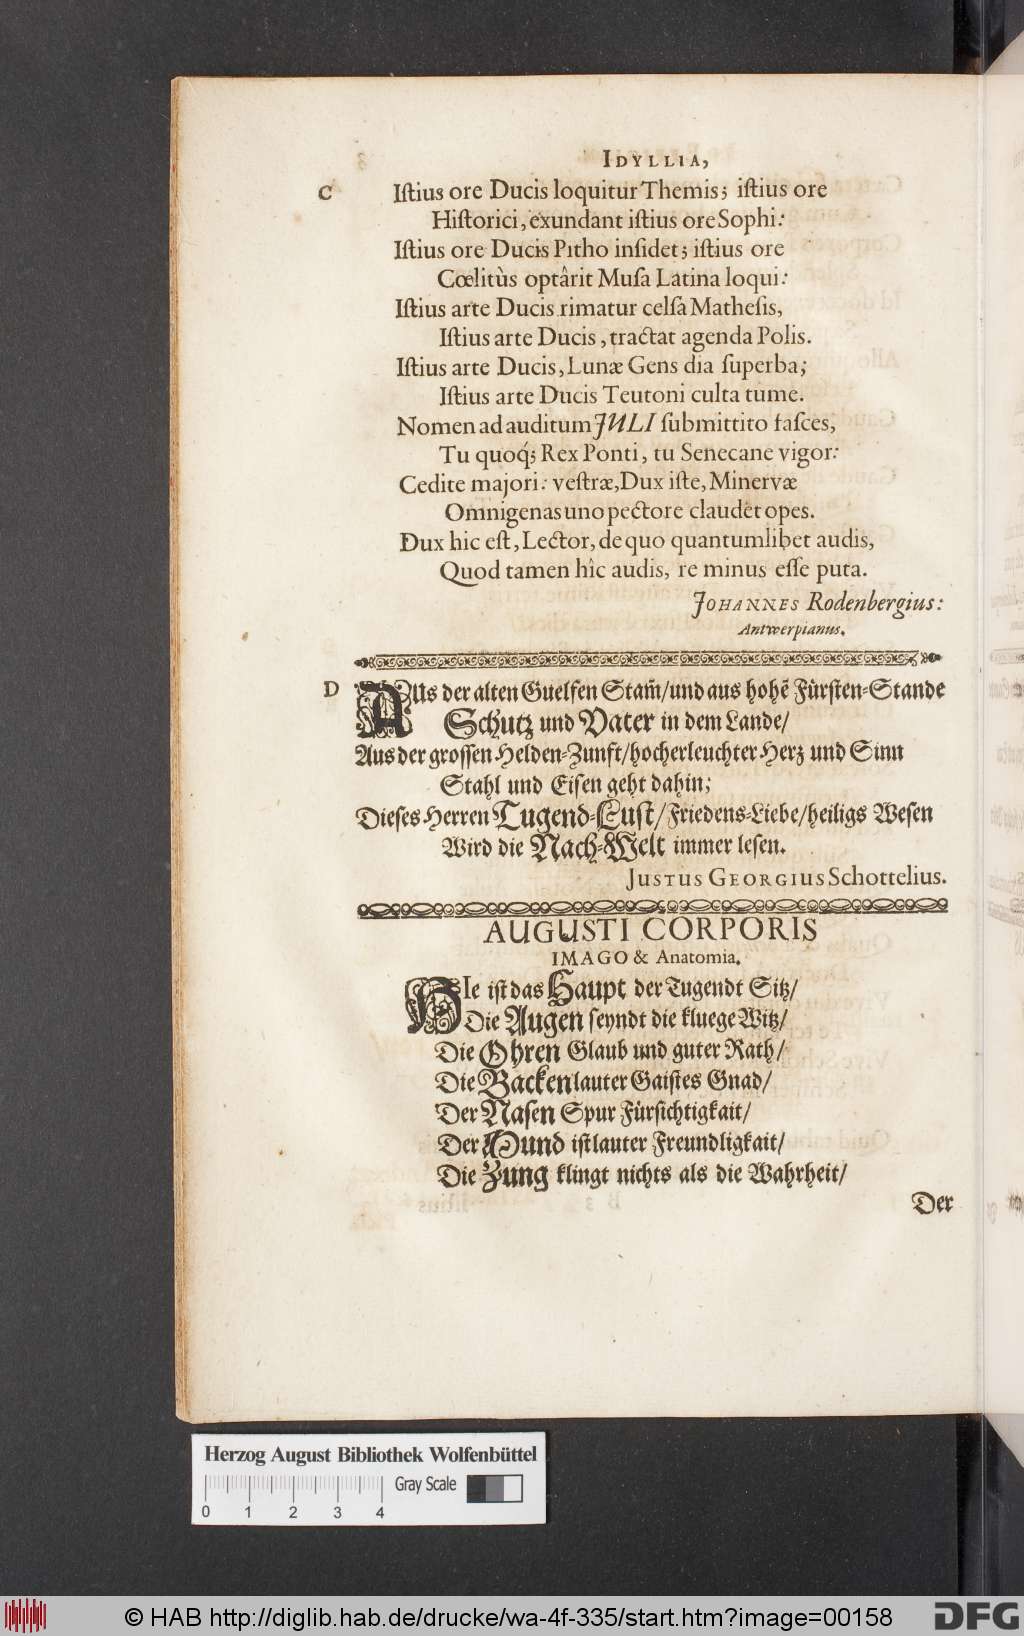 IDYLLIA,
C Iſtius ore Ducis loquitur Themis; iſtius ore
Hiſtorici, exundant iſtius ore Sophi:
Iſtius ore Ducis Pitho inſidet; iſtius ore
Cœlitùs optârit Muſa Latina loqui:
Iſtius arte Ducis rimatur celſa Matheſis,
Iſtius arte Ducis, tractat agenda Polis.
Iſtius arte Ducis, Lunæ Gens dia ſuperba;
Iſtius arte Ducis Teutoni culta tume.
Nomen ad auditum JULI ſubmittito faſces,
Tu quoq́; Rex Ponti, tu Senecane vigor:
Cedite majori: veſtræ, Dux iſte, Minervæ
Omnigenas uno pectore claudet opes.
Dux hic eſt, Lector, de quo quantumlibet audis,
Quod tamen hîc audis, re minus eſſe puta.
JOHANNES Rodenbergius:
Antwerpianus.
D AUs der alten Guelfen Stam̃/und aus hohẽ Fürſten-Stande
Schutz und Vater in dem Lande/
Aus der groſſen Helden-Zunft/hocherleuchter Herz und Sinn
Stahl und Eiſen geht dahin;
Dieſes Herren Tugend-Luſt/Friedens-Liebe/heiligs Weſen
Wird die Nach-Welt immer leſen.
JUSTUS GEORGIUS Schottelius.
AUGUSTI CORPORIS
IMAGO & Anatomia.
HIe iſt das Haupt der Tugendt Sitz/
Die Augen ſeyndt die kluege Witz/
Die Ohren Glaub und guter Rath/
Die Backen lauter Gaiſtes Gnad/
Der Naſen Spur Fürſichtigkait/
Der Mund iſt lauter Freundligkait/
Die Zung klingt nichts als die Wahrheit/
Der
Herzog August Bibliothek Wolfenbüttel
Gray Scale
0 1 2 3 4
© HAB http://diglib.hab.de/drucke/wa-4f-335/start.htm?image=00158
DFG